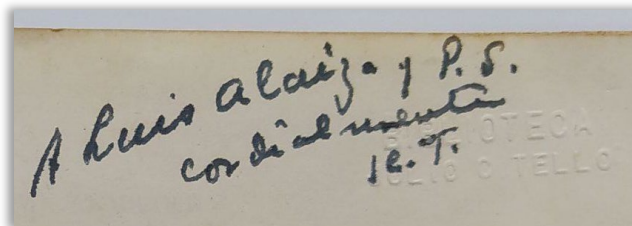 A Luis Alaiza y P. S.
cordialmente
J.C.T.
BIBLIOTECA
JULIO C TELLO